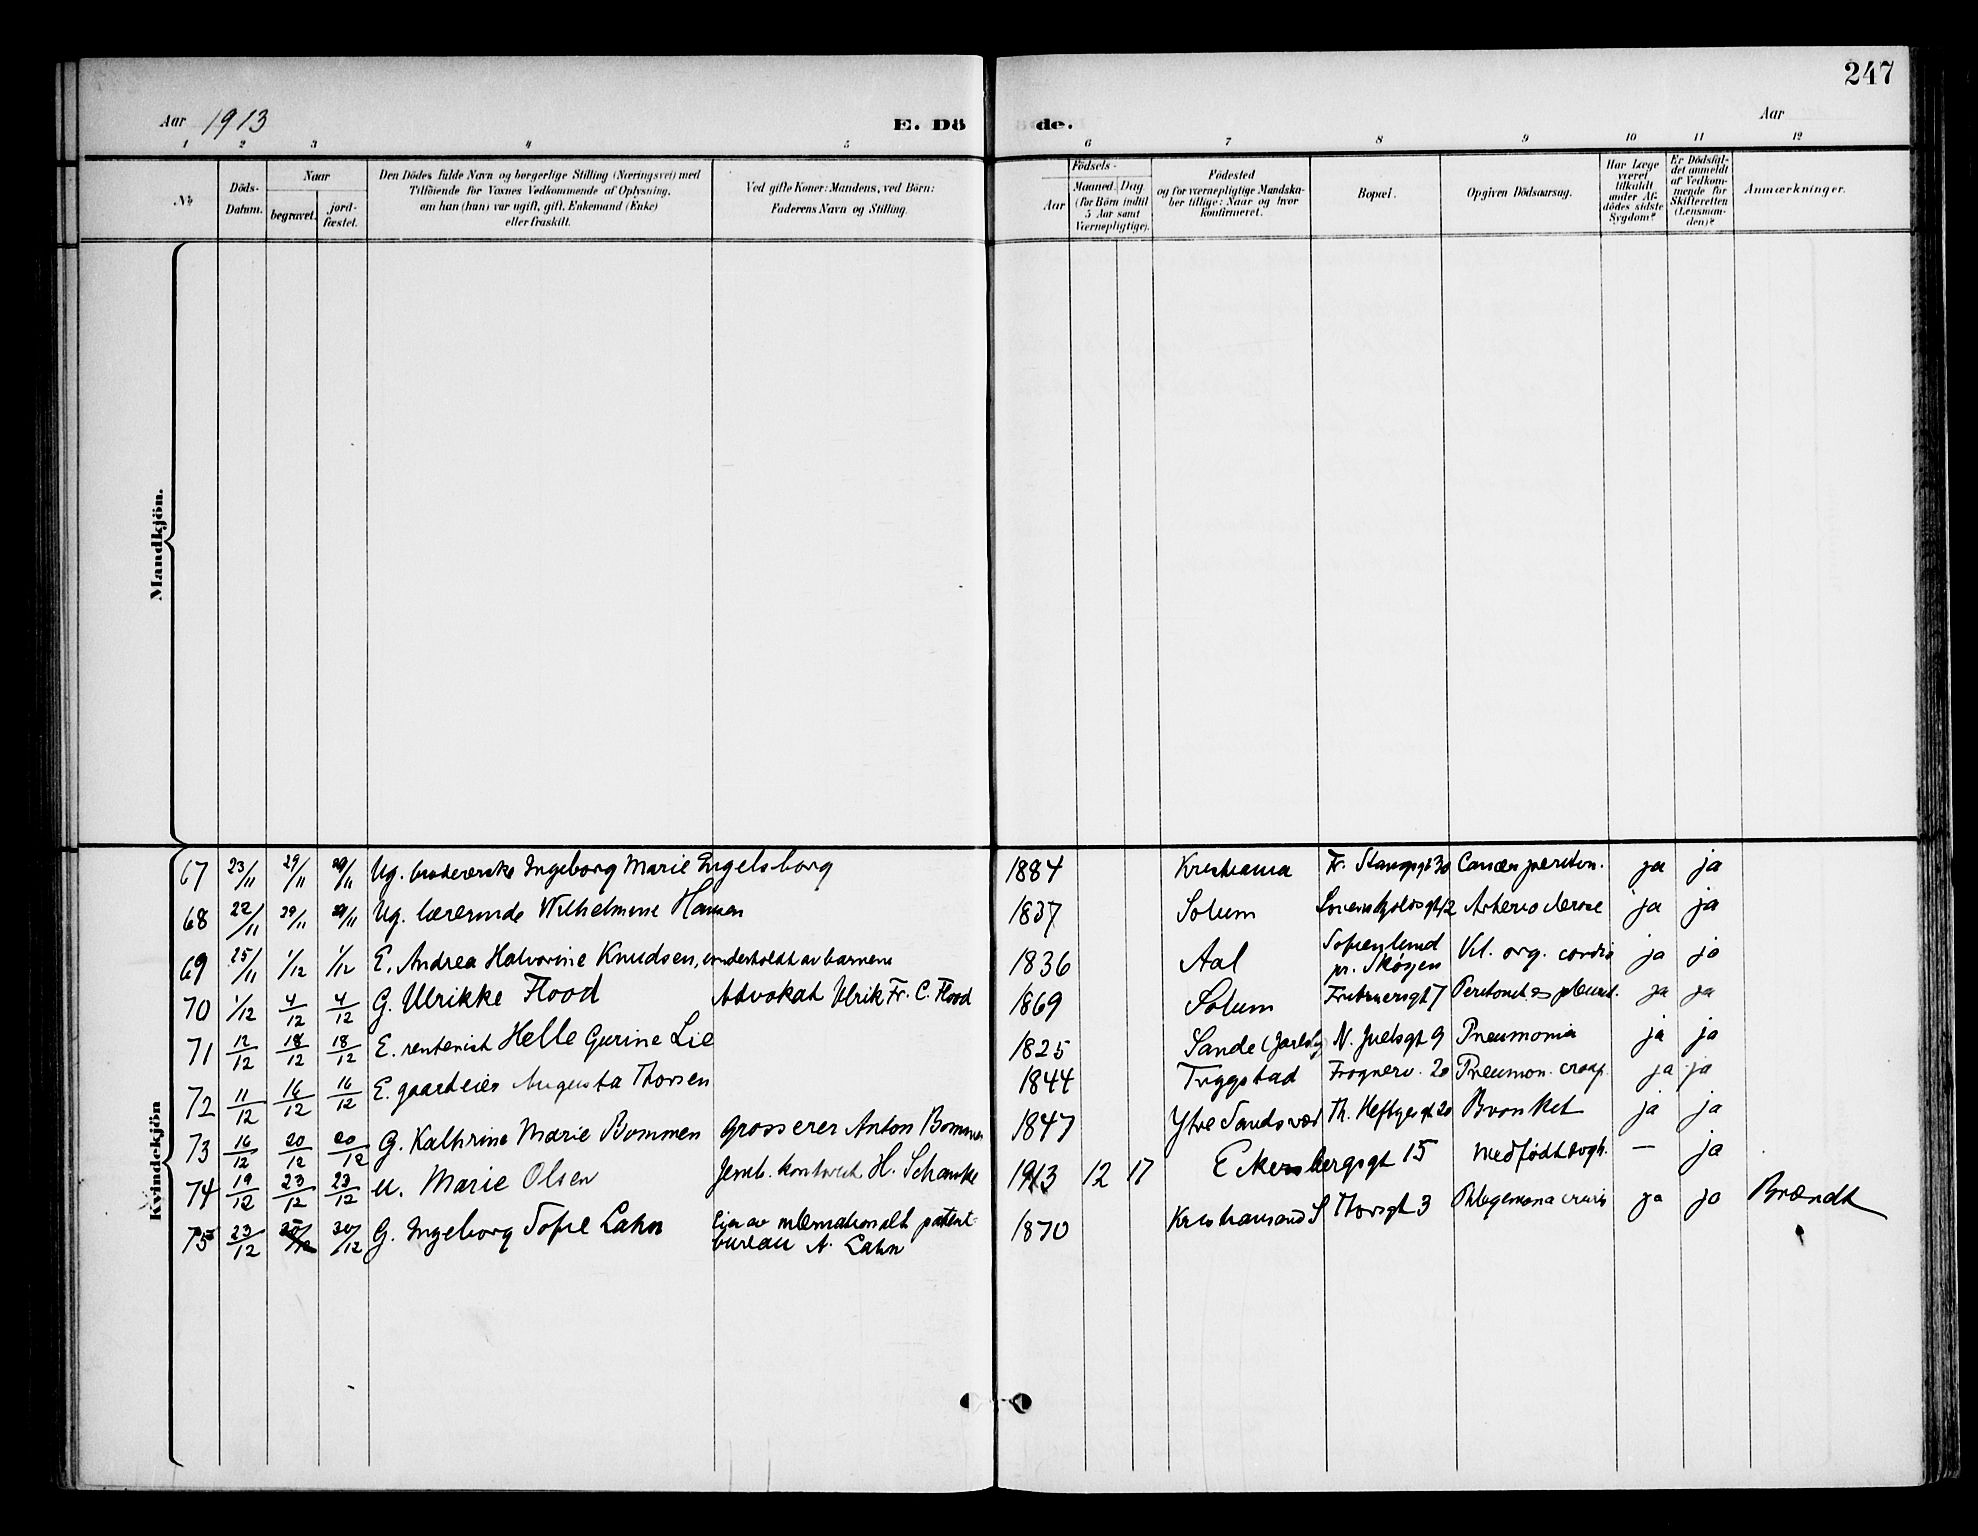 247
Aar 1913
E. Dö
de.
Aar
1 2 3 4 5 6 7 8 9 10 11 12
No.
Döds-
Datum.
Naar
begravet.
jord-
fæstet.
Den Dödes fulde Navn og borgerlige Stilling (Næringsvei) med
Tilföiende för Voxnes Vedkommende af Oplysning,
om han (hun) var ugift, gift, Enkemand (Enke)
eller fraskilt.
Ved gifte Koner: Mandens, ved Börn:
Faderens Navn og Stilling.
Födsels-
Aar
Maaned. Dag
(for Börn indtil
5 Aar samt
Værnepligtige).
Födested
og for værnepligtige Mandska-
ber tillige: Naar og hvor
konfirmeret.
Bopæl.
Opgiven Dödsaarsag.
Har Læge
været
tilkaldt
under Af-
dödes sidste
Sygdom?
Er Dödsfal-
det anmeldt
af Vedkom-
mende for
Skifteretten
(Lensman-
den)?
Anmærkninger.
Mandkjön.
Kvindekjön
67 23/11 29/11 29/11 Ug. Ingeborg Marie Engelsborg 1884 Kristiania Fr. Stangsgt 30 ja ja
68 22/11 29/11 29/11 Ug. lærerinde Wilhelmine Hansen 1837 Solum ja ja
69 25/11 1/12 1/12 E. Andrea Halvorine Knudsen, underholdt av barnene 1836 Aal Sofienlund pr. Skøyen Vit. org. cordis ja ja
70 1/12 4/12 4/12 G. Ulrikke Flood Advokat Ulrik Fr. C. Flood 1869 Solum Fritznersgt 7 ja ja
71 12/12 18/12 18/12 E. rentenist Helle Gurine Lie 1825 Sande (Jarlsbg N. Juelsgt 9 Pneumonia ja ja
72 11/12 16/12 16/12 E. gaardeier Augusta Thorsen 1844 Trygstad Frognerv. 20 Pneumon. croup. ja ja
73 16/12 20/12 20/12 G. Kathrine Marie Bommen grosserer Anton Bommen 1847 Ytre Sandsvær Th. Heftyesgt 20 Bronkit ja ja
74 19/12 23/12 23/12 u. Marie Olsen Jernb. kontorist H. Schanke 1913 12 17 Eckersbergsgt 15 medfødt svagh. — ja
75 23/12 30/12 G. Ingeborg Sofie Lahn Eier av internationalt patent-
bureau A. Lahn 1870 Kristiansand S Thorsgt 3 Phlegemona cruris ja ja Brændt